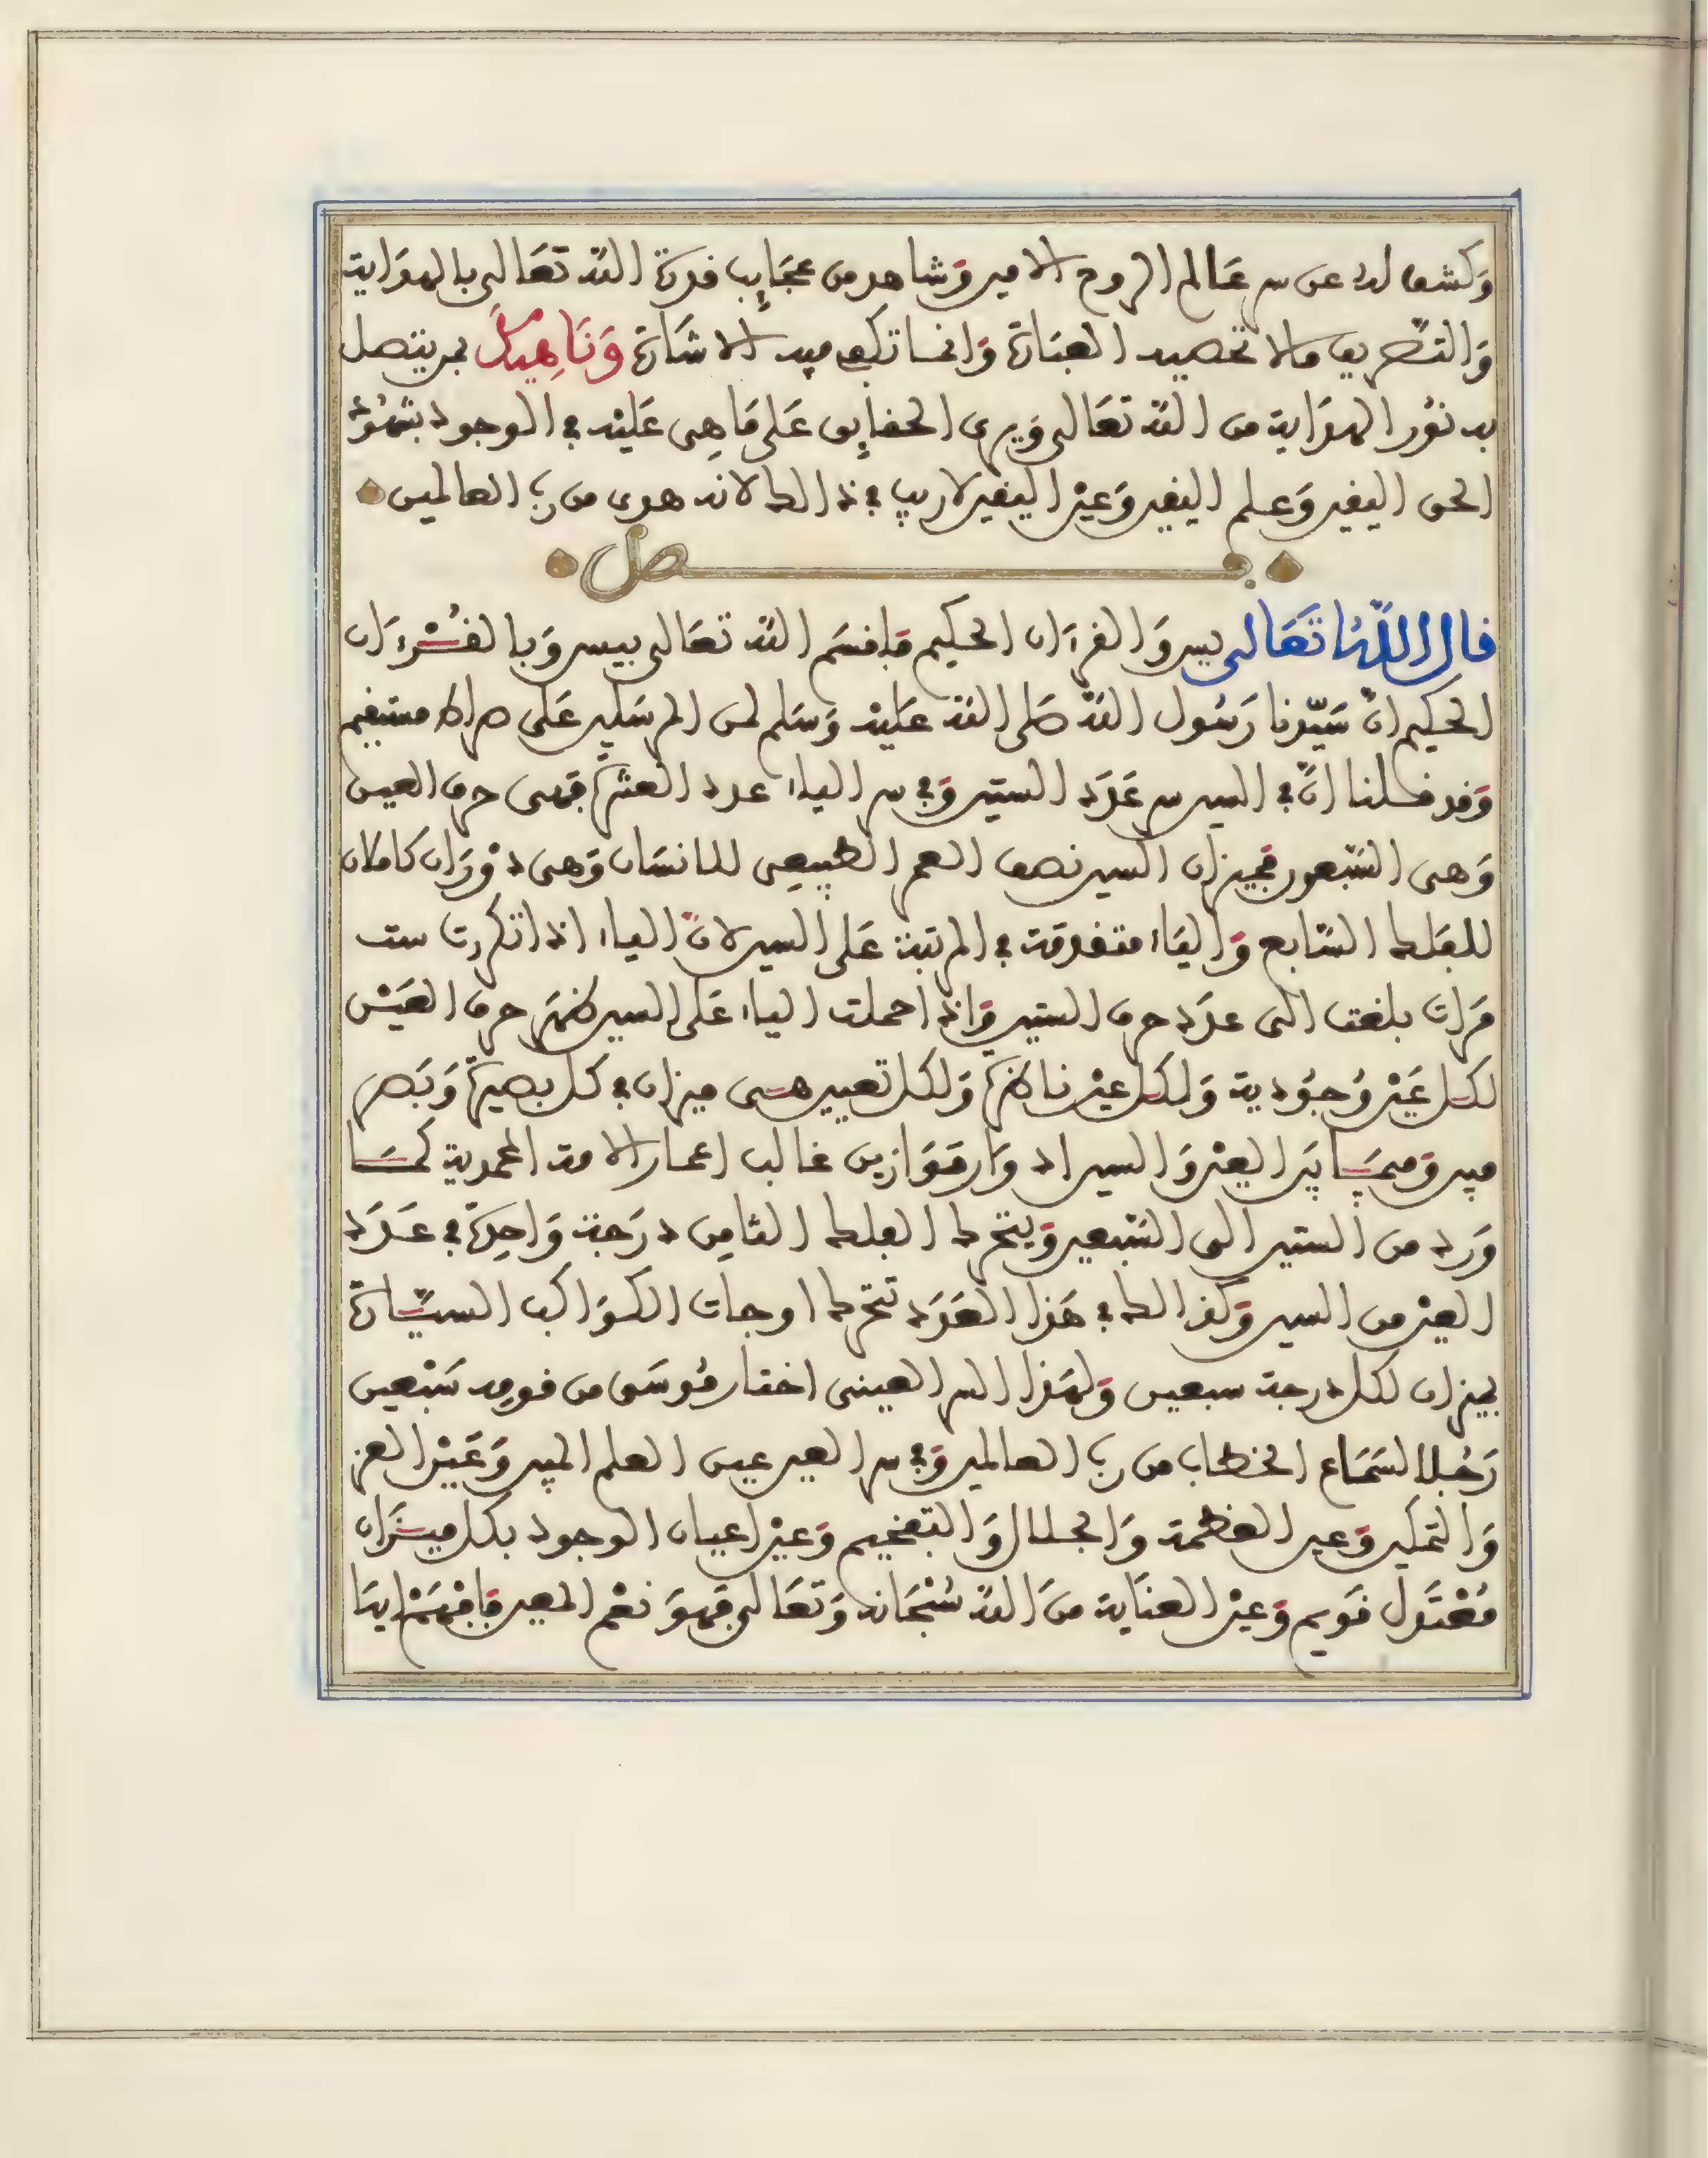 وَكشف له عن سر عَالم الروح الامين وَشاهد من عجَايِب قدرة الله تعَالى بالهدَاية
وَالتصريف مالا تحصيه العبَارة وَانما تكفي فيه الاشَارة وَنَاهِيكَ بمن يتصل
به نوُر الهدَاية من الله تعَالى وَيرى الحقايِق عَلى مَا هِى عَليْه في الوجود بشهُود
الحق اليقين وَعلم اليقين وَعين اليقين لاريب في ذالك لانه هدى من رب العالمين
فصل
قال اللهُ تَعَالى يس وَالقرءَان الحكيم فَاقسَم الله تعَالى بيس وَبالقُـرْءَان
الحكيم انّ سَيّدنا رَسُول الله صَلى الله عَليْه وَسَلم لمن المرسَلين عَلى صراط مستقيم
وَقد قـلنا انّ في السين سر عَدَد الستين وَفي سر الياء عدد العشَرة فَهى حرف العين
وَهى السَّبعون فميزان السين نصف العمر الطبِيعِى للانسَان وَهى دوْرَان كاملان
للفَلك السَّابع وَاليَاء متقدمة في المرتبة عَلى السين لانّ الياء اذا تكررت ست
مَرات بلغت الى عدَد حرف الستين وَاذا حملت الياء عَلى السين ظهَر حرف العيَـْن
لكـل عَيْن وُجوُدية وَلكـل عيْن ناظرة وَلكل تعيين هـى ميزان في كل بصيرة وَبَصر
فيه وَميمَـا بَين العيْن وَالسين اد وَار مَوَازين غالب اعمار الامة المحمدية كمَـا
وَرد من الستين الى السَّبعين وَيتحرك الفلك الثامِن درَجة وَاحِدة في عَـدَد
العيْن من السين وَكذالك في هَذا العَدَد تتحرك اوجات الكوَاكب السيّـارة
بميزان لكل درجة سبعين وَلهَذا السر العينى اختار مُوسَى من قومِه سَبْعين
رَجُلا لسَمَاع الخطاب من رب العالمين وَفي سر العين عين العلم المبين وَعَيْن العز
وَالتمكين وَعين العظمة وَالجـلال وَالتفخيم وَعيْن اعيان الوجود بكل ميـزَان
مُعْتَدل قوَيم وَعيْن العنَاية منَ الله سُبْحَانه وَتعَالى فهوَ نعْم المعين فَافهَمْ ايهَا